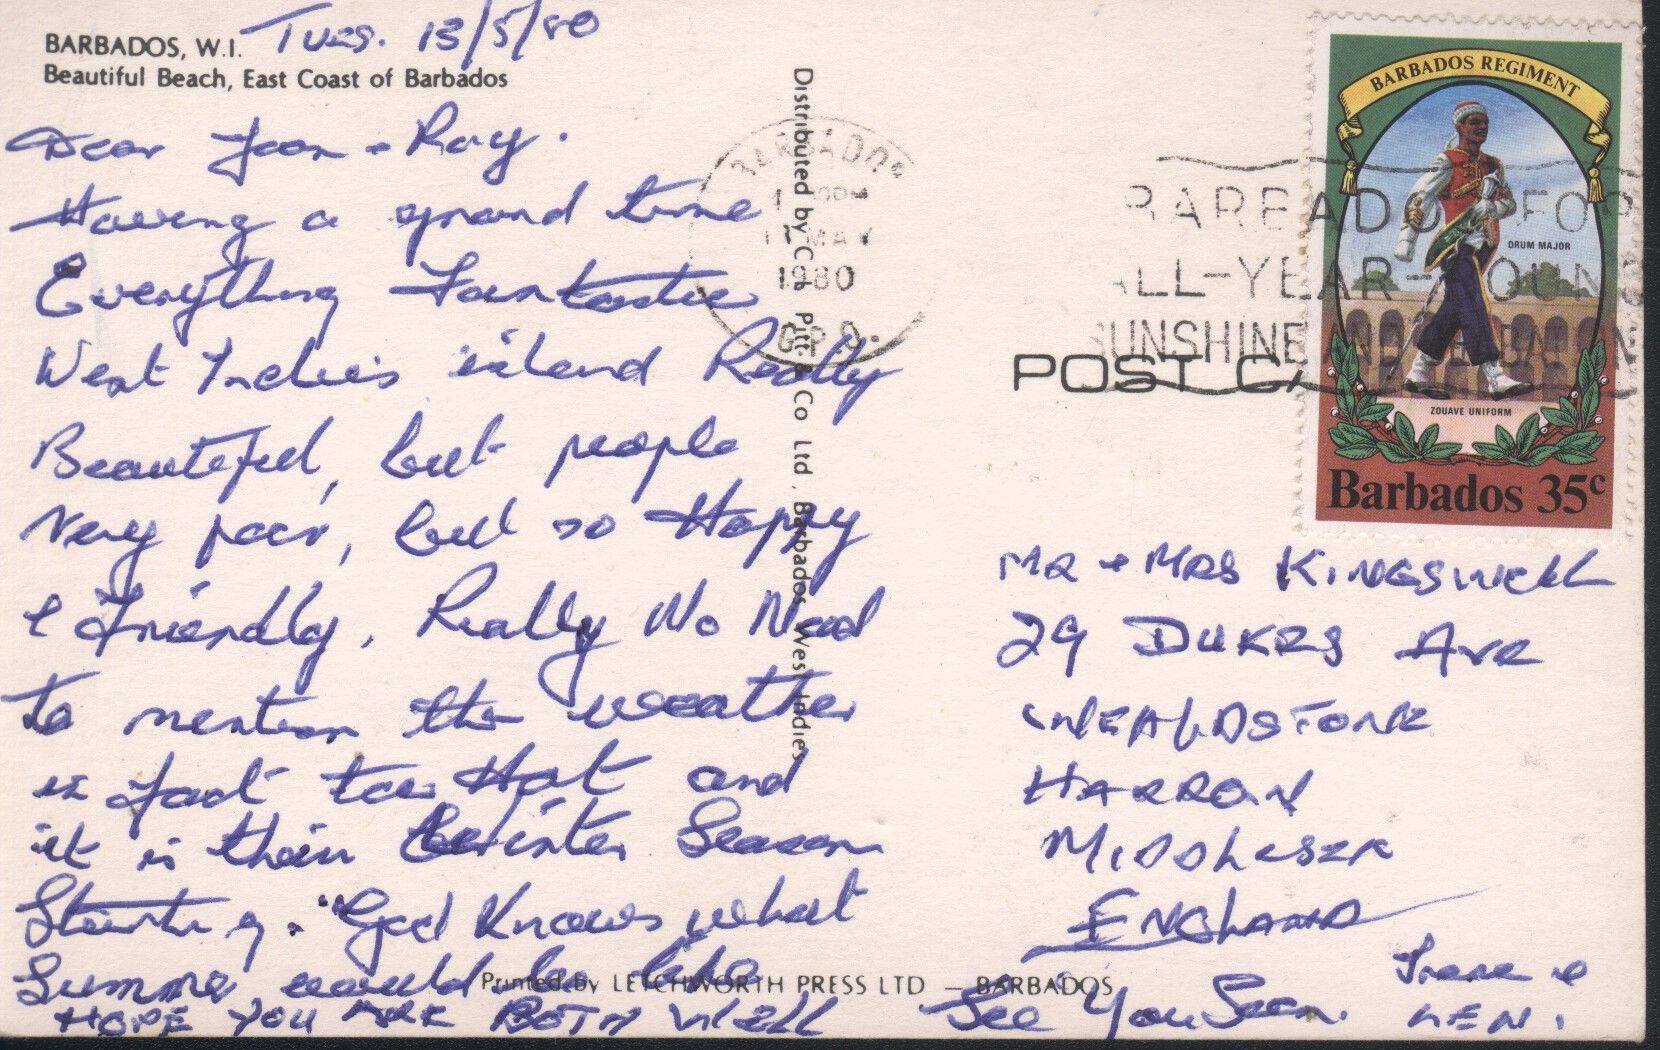 BARBADOS, W.I. TUES. 13/5/80
Beautiful Beach, East Coast of Barbados
Dear Joan + Ray.
Having a grand time
Everything Fantastic
West Indies island Really
Beautiful, but people
Very poor, but so Happy
& Friendly, Really No Need
to mention the weather
is fact too Hot and
it is their Winter Season
Starting. "God Knows what
Summer would be like
HOPE YOU ARE BOTH WELL
See You Soon. Irene &
LEN.
Distributed by C. L. Pitt & Co Ltd, Barbados, West Indies
Printed by LETCHWORTH PRESS LTD — BARBADOS
POST CA
BARBADOS
MAY
1980
G.P.O.
BARBADOS FOR
ALL-YEAR-ROUND
SUNSHINE AND
BARBADOS REGIMENT
DRUM MAJOR
ZOUAVE UNIFORM
Barbados 35c
MR + MRS KINGSWELL
29 DUKES AVE
WEALDSTONE
HARROW
MIDDLESEX
ENGLAND